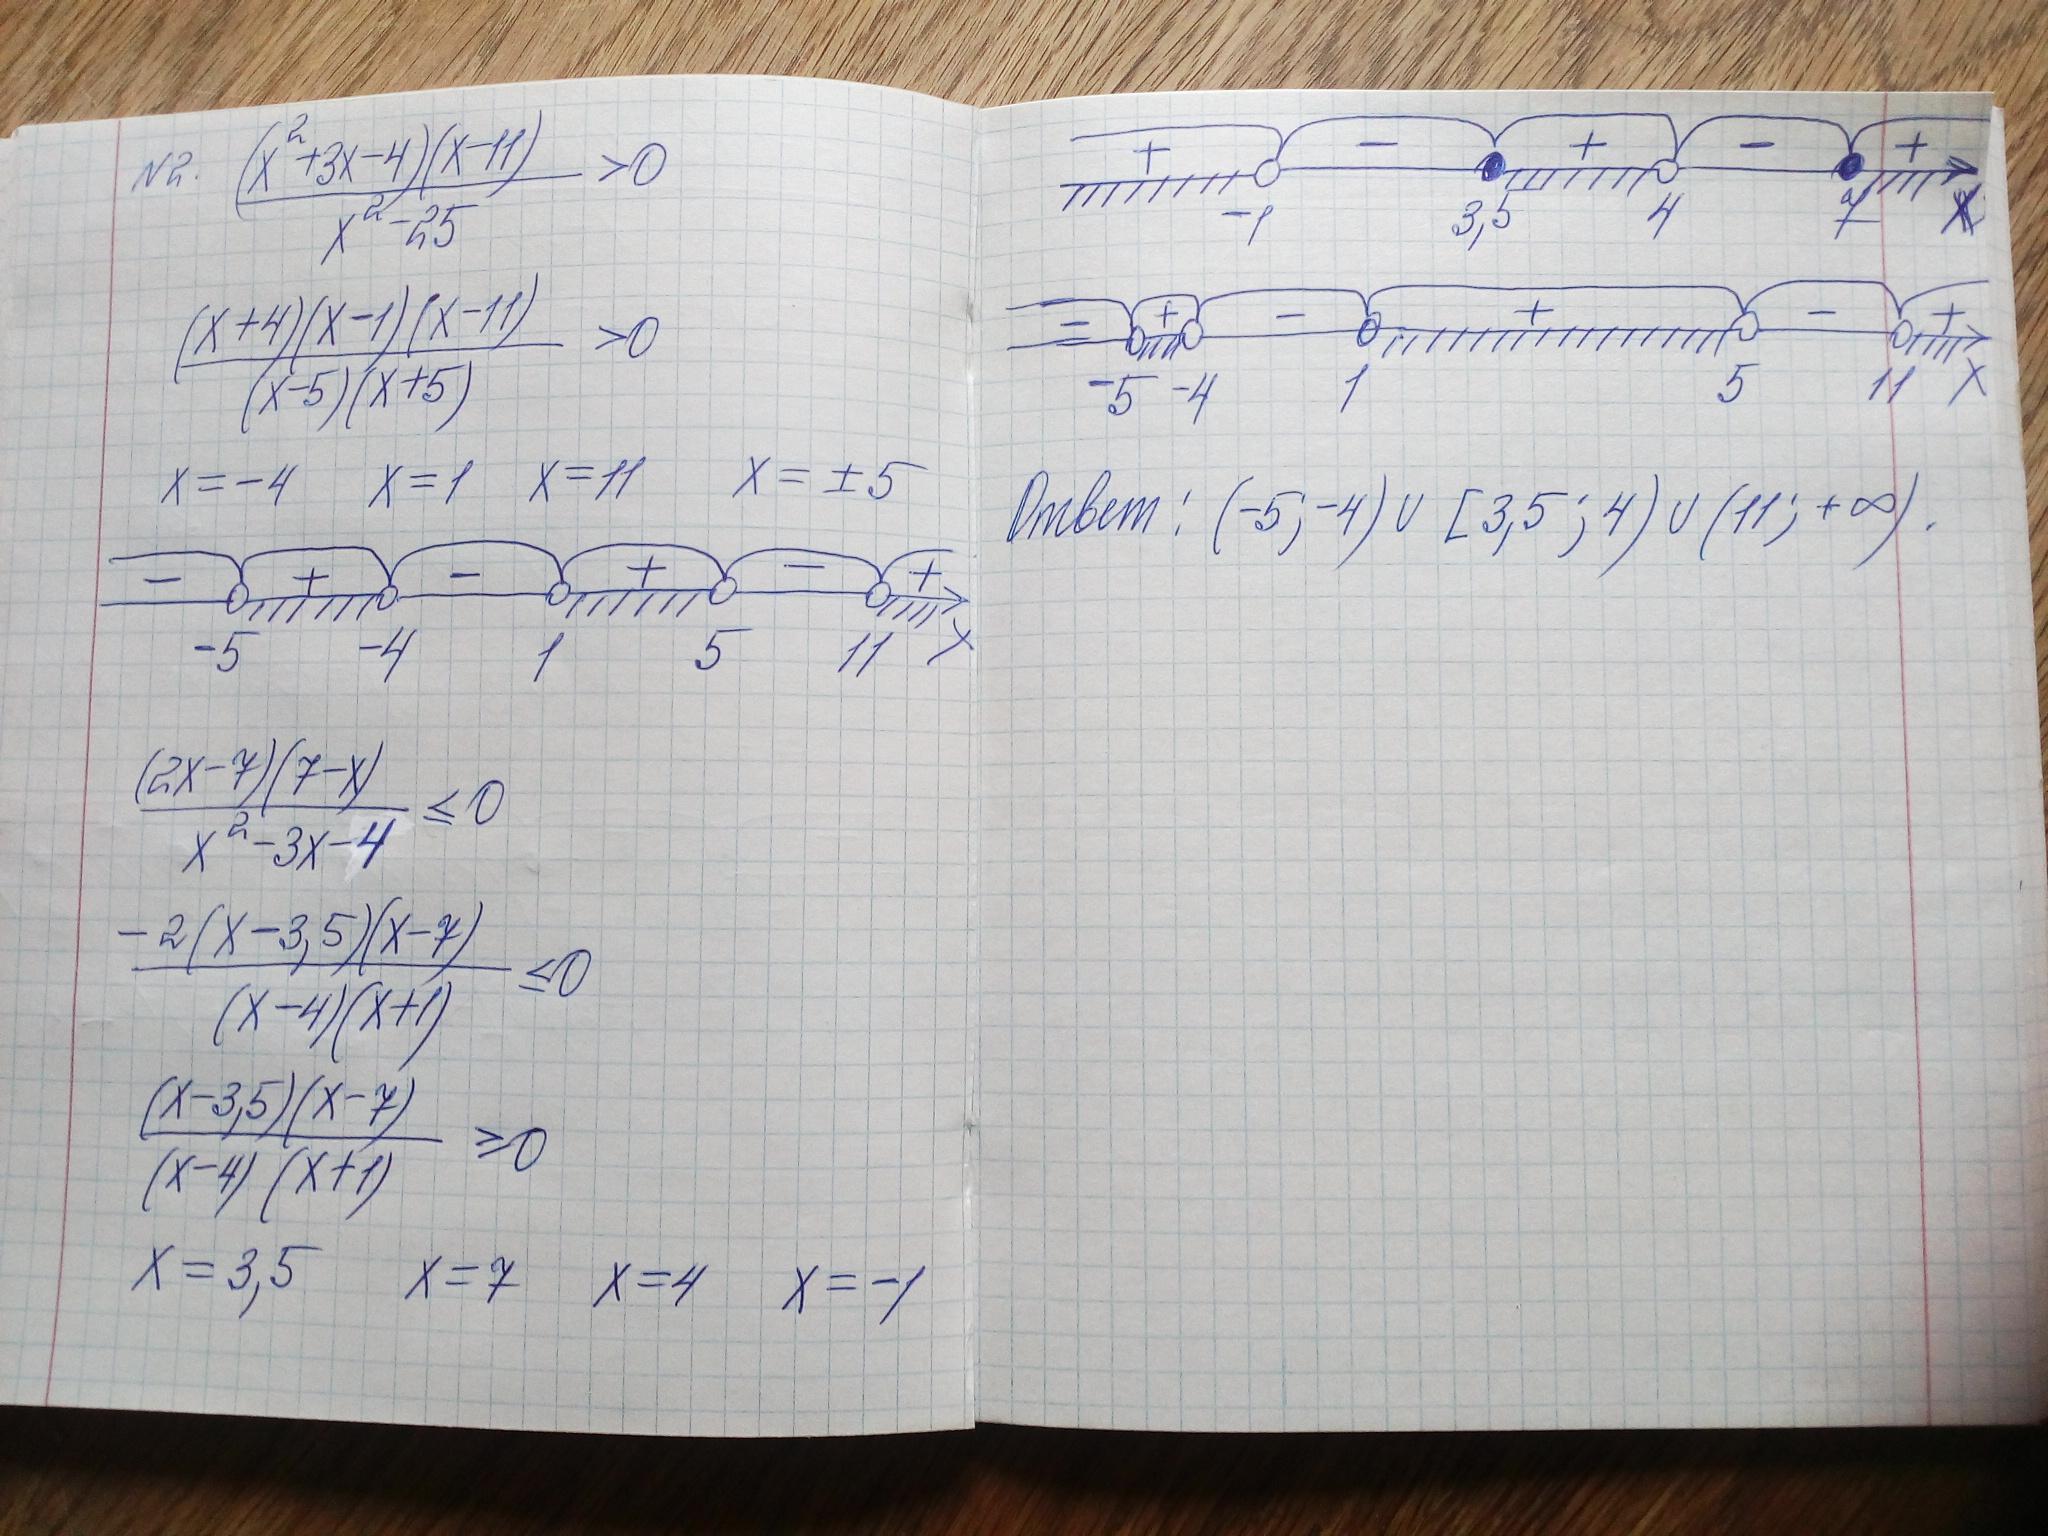 N2. (x²+3x-4)(x-11)/(x²-25) >0
(x+4)(x-1)(x-11)/((x-5)(x+5)) >0
x=-4 x=1 x=11 x=±5
- + - + - +
-5 -4 1 5 11 x
(2x-7)(7-x)/(x²-3x-4) ≤0
-2(x-3,5)(x-7)/((x-4)(x+1)) ≤0
(x-3,5)(x-7)/((x-4)(x+1)) ≥0
x=3,5 x=7 x=4 x=-1
+ - + - +
-1 3,5 4 7 x
- + - + - +
-5 -4 1 5 11 x
Ответ: (-5;-4)∪[3,5;4)∪(11;+∞).